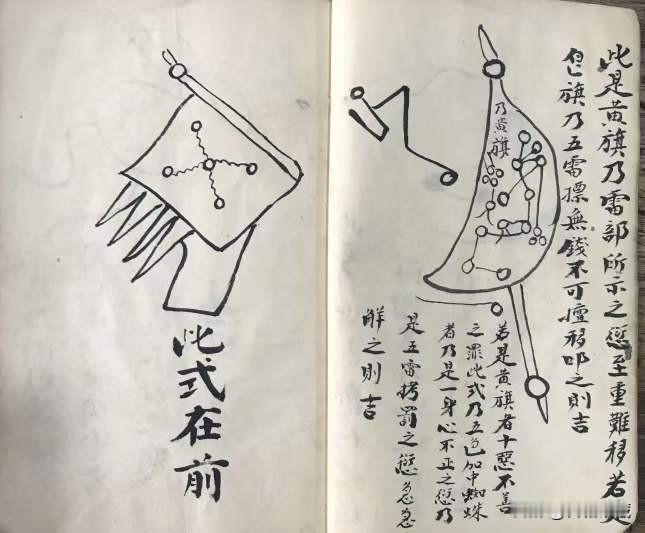 此是黄旗乃雷部所示之愆至重難移若是
皀旗乃五雷摽無錢不可擅移叩之則吉
乃黄旗
若是黄旗者十惡不善
之罪此式乃五色加中蜘蛛
者乃是一身心不正之愆乃
是五雷拷罰之愆急急
解之則吉
此式在前